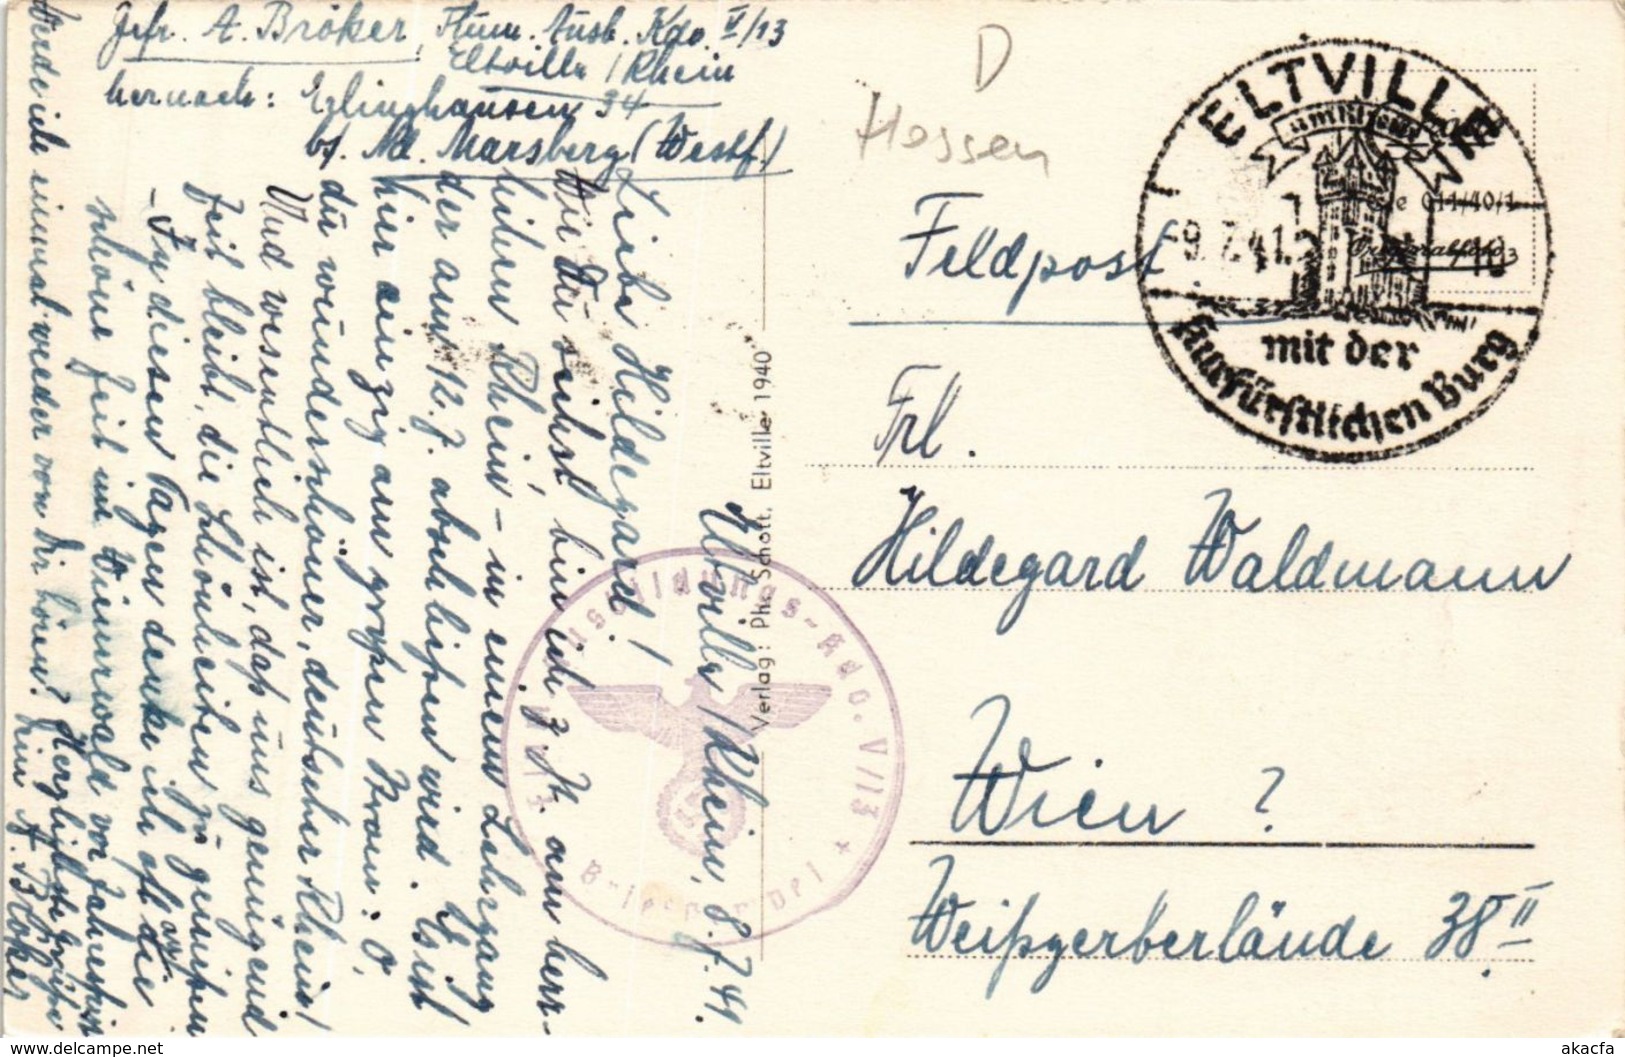 Gefr. A. Bröker, Flum. Ausb. Kdo. V/13
Eltville / Rhein
hernach: Erlinghausen 34
bs. Nd. Marsberg (Westf.)
Eltville / Rhein, 8.7.41.
Liebe Hildegard!
Wie Du siehst bin ich z. Zt. am herr-
lichen Rhein, - in einem Lehrgang
der am 12.7. abschließen wird. Es ist
hier einzig am großen Strom: O,
du wunderschöner, deutscher Rhein!
Und wesentlich ist, daß uns genügend
Zeit bleibt, die Schönheiten zu genießen
- In diesen Tagen denke ich oft an die
schöne Zeit im Wienerwald vor Jahresfrist
Werde ich einmal wieder von Dir hören? Herzlichste Grüße
Dein A. Bröker
Verlag: Phot. Schott, Eltville 1940
Ausbildungs-Kdo. V/13
Briefstempel
D
Hessen
ELTVILLE
am Rhein
-9.7.41.
mit der
Kurfürstlichen Burg
Feldpost
Frl.
Hildegard Waldmann
Wien ?
Weißgerberlände 38 II
akacfa